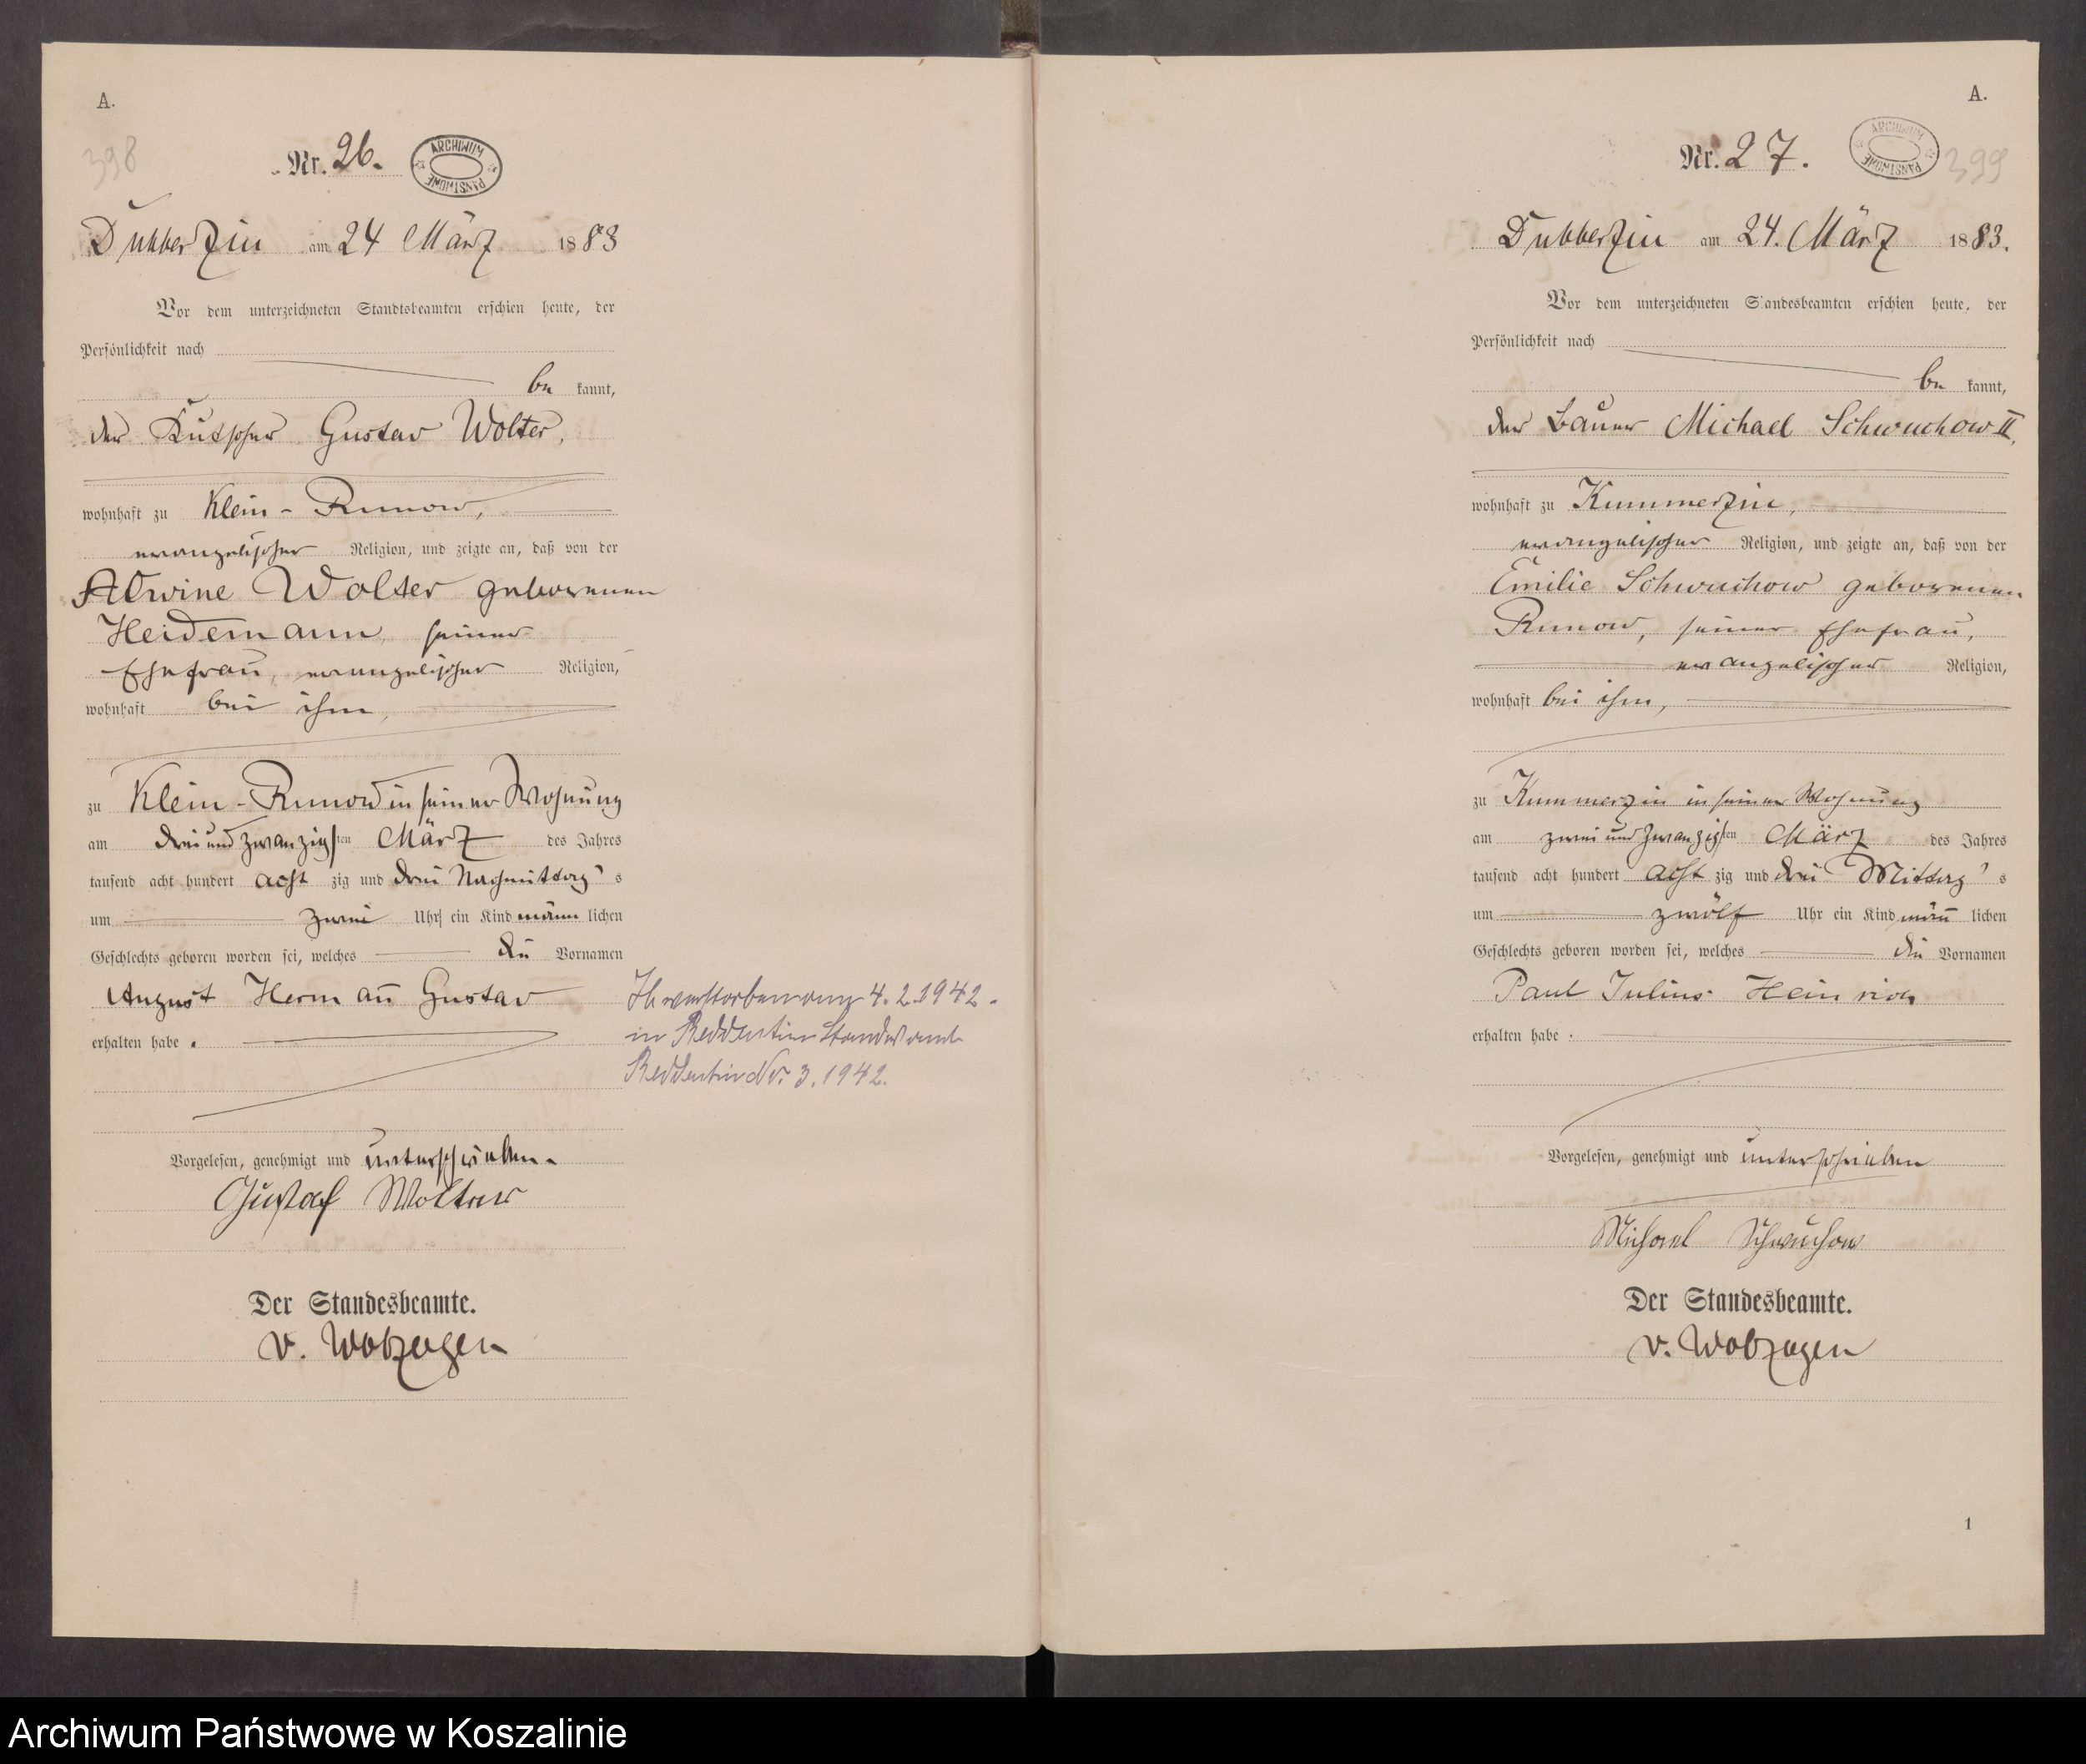 A.
398
Nr. 26.
ARCHIWUM PAŃSTWOWE
Dubberzin am 24 März 1883
Vor dem unterzeichneten Standtsbeamten erschien heute, der
Persönlichkeit nach
be kannt,
der Kutscher Gustav Wolter,
wohnhaft zu Klein-Runow,
evangelischer Religion, und zeigte an, daß von der
Alwine Wolter geborenen
Heidemann, seiner
Ehefrau, evangelischer Religion,
wohnhaft bei ihm,
zu Klein-Runow in seiner Wohnung
am drei und zwanzigsten März des Jahres
tausend acht hundert acht zig und drei Nachmittag's
um zwei Uhr ein Kind männ lichen
Geschlechts geboren worden sei, welches die Vornamen
August Hermañ Gustav
erhalten habe.
verstorben am 4.2.1942.
in Reddentin Standesamt
Reddentin Nr. 3.1942.
Vorgelesen, genehmigt und unterschrieben.
Gustaf Wolter
Der Standesbeamte.
v. Wolzogen
A.
Nr. 27.
ARCHIWUM PAŃSTWOWE
399
Dubberzin am 24. März 1883.
Vor dem unterzeichneten Standesbeamten erschien heute, der
Persönlichkeit nach
be kannt,
der Bauer Michael Schwuchow II,
wohnhaft zu Kummerzin,
evangelischer Religion, und zeigte an, daß von der
Emilie Schwuchow geborenen
Runow, seiner Ehefrau,
evangelischer Religion,
wohnhaft bei ihm,
zu Kummerzin in seiner Wohnung
am zwei und zwanzigsten März des Jahres
tausend acht hundert acht zig und drei Mittag's
um zwölf Uhr ein Kind män̄ lichen
Geschlechts geboren worden sei, welches die Vornamen
Paul Julius Heinrich
erhalten habe.
Vorgelesen, genehmigt und unterschrieben
Michael Schwuchow
Der Standesbeamte.
v. Wolzogen
1
Archiwum Państwowe w Koszalinie